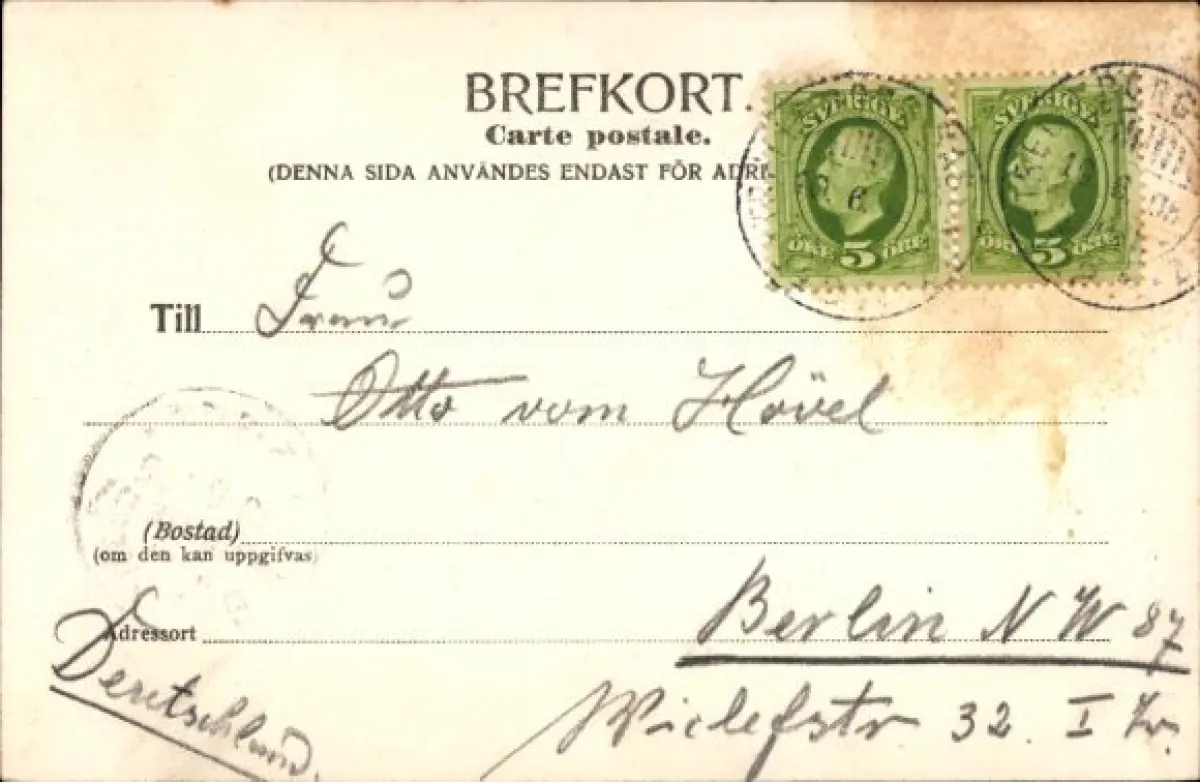 BREFKORT.
Carte postale.
(DENNA SIDA ANVÄNDES ENDAST FÖR ADRE
SVERIGE SVERIGE
ÖRE 5 ÖRE ÖRE 5 ÖRE
Till Frau
Otto vom Hövel
(Bostad)
(om den kan uppgifvas)
Adressort Berlin N W 87
Deutschland.
Wiclefstr 32. I Tr.